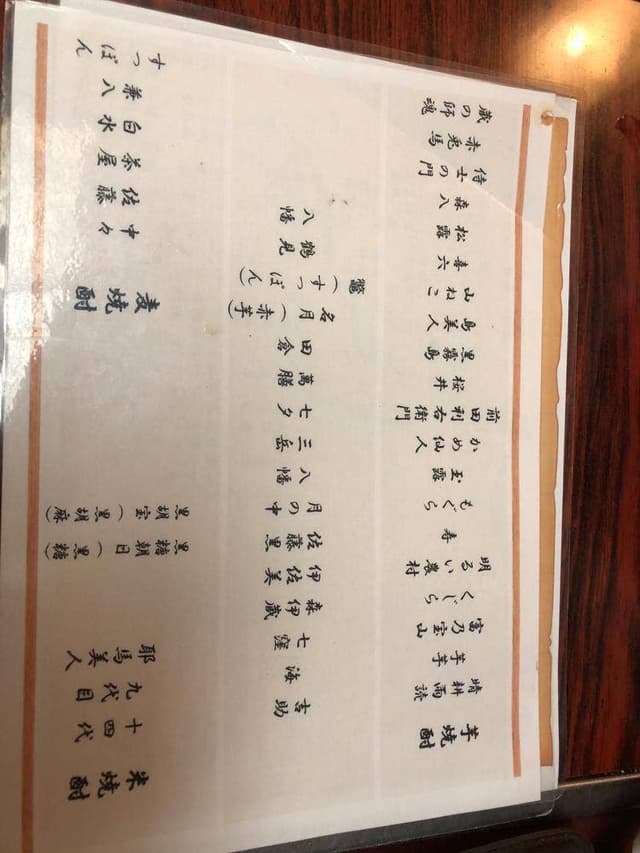 芋焼酎
晴耕雨読
芋芋
富乃宝山
くじら
明るい農村
寿
もぐら
玉露
かめ仙人
前田利右衛門
桜井
黒霧島
島美人
山ねこ
喜六
松露
森八
侍士の門
赤兎馬
蔵の師魂
吉助
海
七窪
森伊蔵
伊佐美
佐藤黒
月の中
八幡
三岳
七夕
萬膳
田倉
名月(赤芋)
鼈(すっぽん)
鶴見
八幡
米焼酎
十四代
九代目
耶馬美人
麦焼酎
中々
佐藤
茶屋
白水
兼八
すっぽん